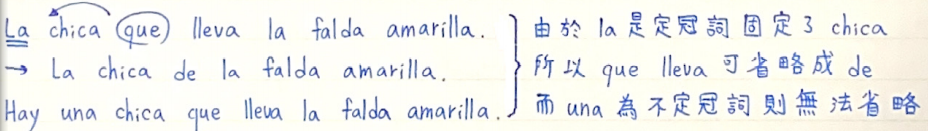 La chica que lleva la falda amarilla.
→ La chica de la falda amarilla.
Hay una chica que lleva la falda amarilla.
由於 la 是定冠詞固定了 chica
所以 que lleva 可省略成 de
而 una 為不定冠詞則無法省略